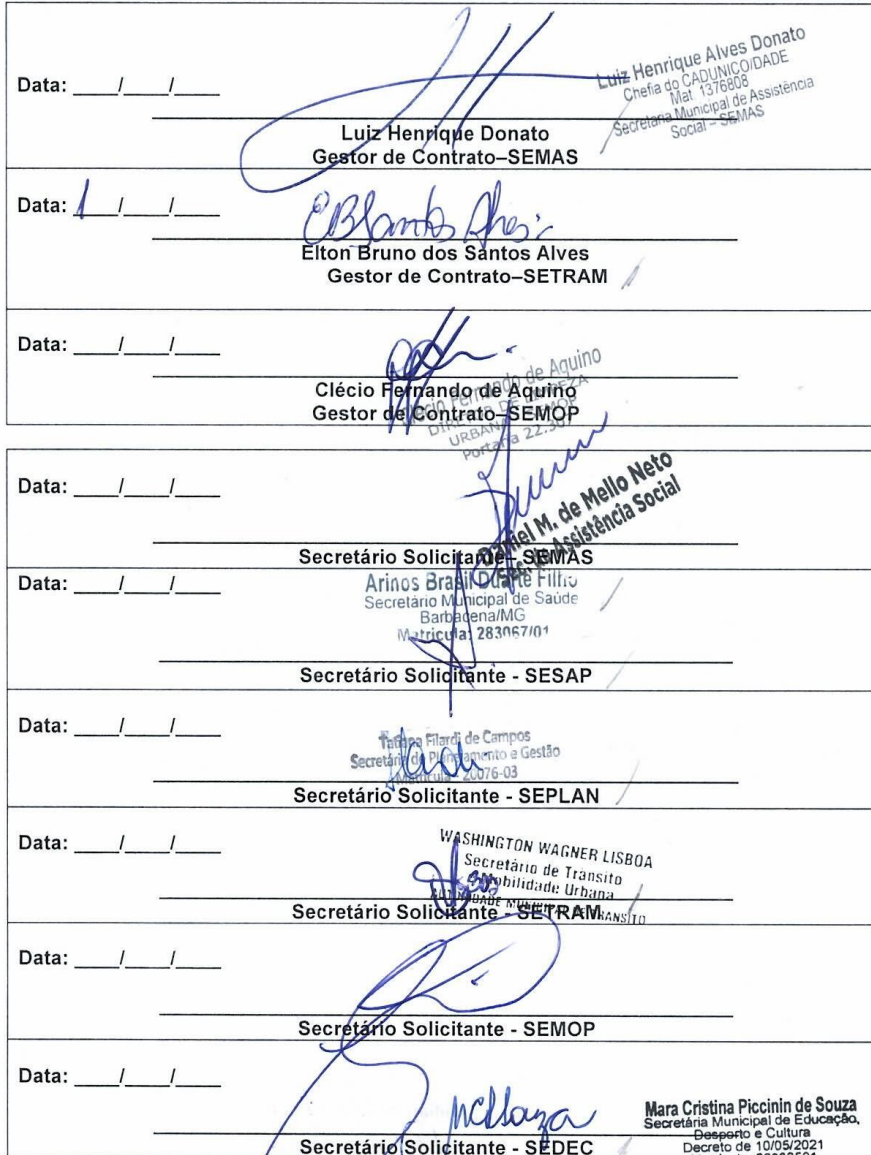 Data: ____/____/____
Luiz Henrique Alves Donato
Chefia do CADUNICO/DADE
Mat. 1376808
Secretaria Municipal de Assistência
Social – SEMAS
Luiz Henrique Donato
Gestor de Contrato–SEMAS
Data: ____/____/____
EBSantos Alves
Elton Bruno dos Santos Alves
Gestor de Contrato–SETRAM
Data: ____/____/____
Clécio Fernando de Aquino
Gestor de Contrato–SEMOP
Clécio Fernando de Aquino
DIRETOR DE LIMPEZA
URBANA - SEMOP
Portaria 22.307
Data: ____/____/____
Daniel M. de Mello Neto
Sec. de Assistência Social
Secretário Solicitante– SEMAS
Data: ____/____/____
Arinos Brasil Duarte Filho
Secretário Municipal de Saúde
Barbacena/MG
Matrícula: 283067/01
Secretário Solicitante - SESAP
Data: ____/____/____
Tatiana Filardi de Campos
Secretária de Planejamento e Gestão
Matrícula - 20076-03
Secretário Solicitante - SEPLAN
Data: ____/____/____
WASHINGTON WAGNER LISBOA
Secretário de Trânsito
e Mobilidade Urbana
AUTORIDADE MUNICIPAL DE TRANSITO
Secretário Solicitante - SETRAM
Data: ____/____/____
Secretário Solicitante - SEMOP
Data: ____/____/____
MCSouza
Mara Cristina Piccinin de Souza
Secretária Municipal de Educação,
Desporto e Cultura
Decreto de 10/05/2021
Secretário Solicitante - SEDEC